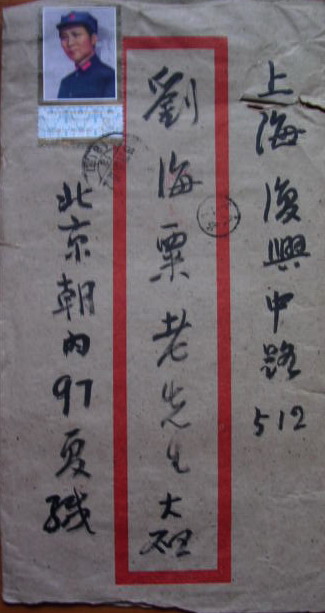 上海復興中路512
劉海粟老先生大啟
北京朝内97夏緘